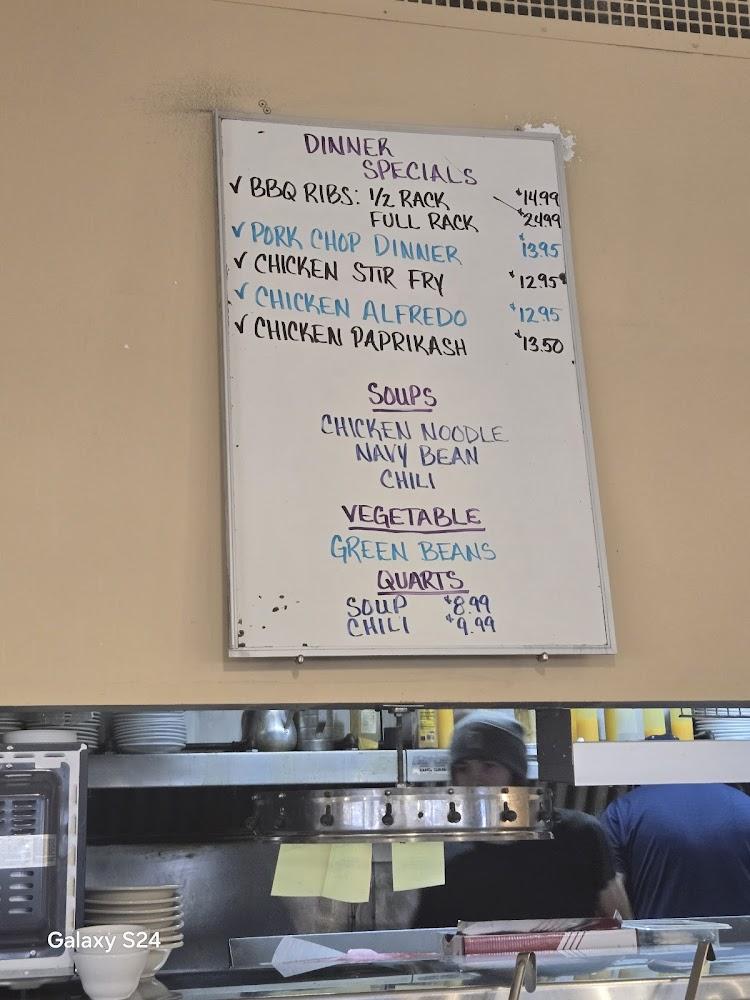 DINNER
SPECIALS
✓ BBQ RIBS: 1/2 RACK $14.99
FULL RACK $24.99
✓ PORK CHOP DINNER $13.95
✓ CHICKEN STIR FRY $12.95
✓ CHICKEN ALFREDO $12.95
✓ CHICKEN PAPRIKASH $13.50
SOUPS
CHICKEN NOODLE
NAVY BEAN
CHILI
VEGETABLE
GREEN BEANS
QUARTS
SOUP $8.99
CHILI $9.99
Galaxy S24